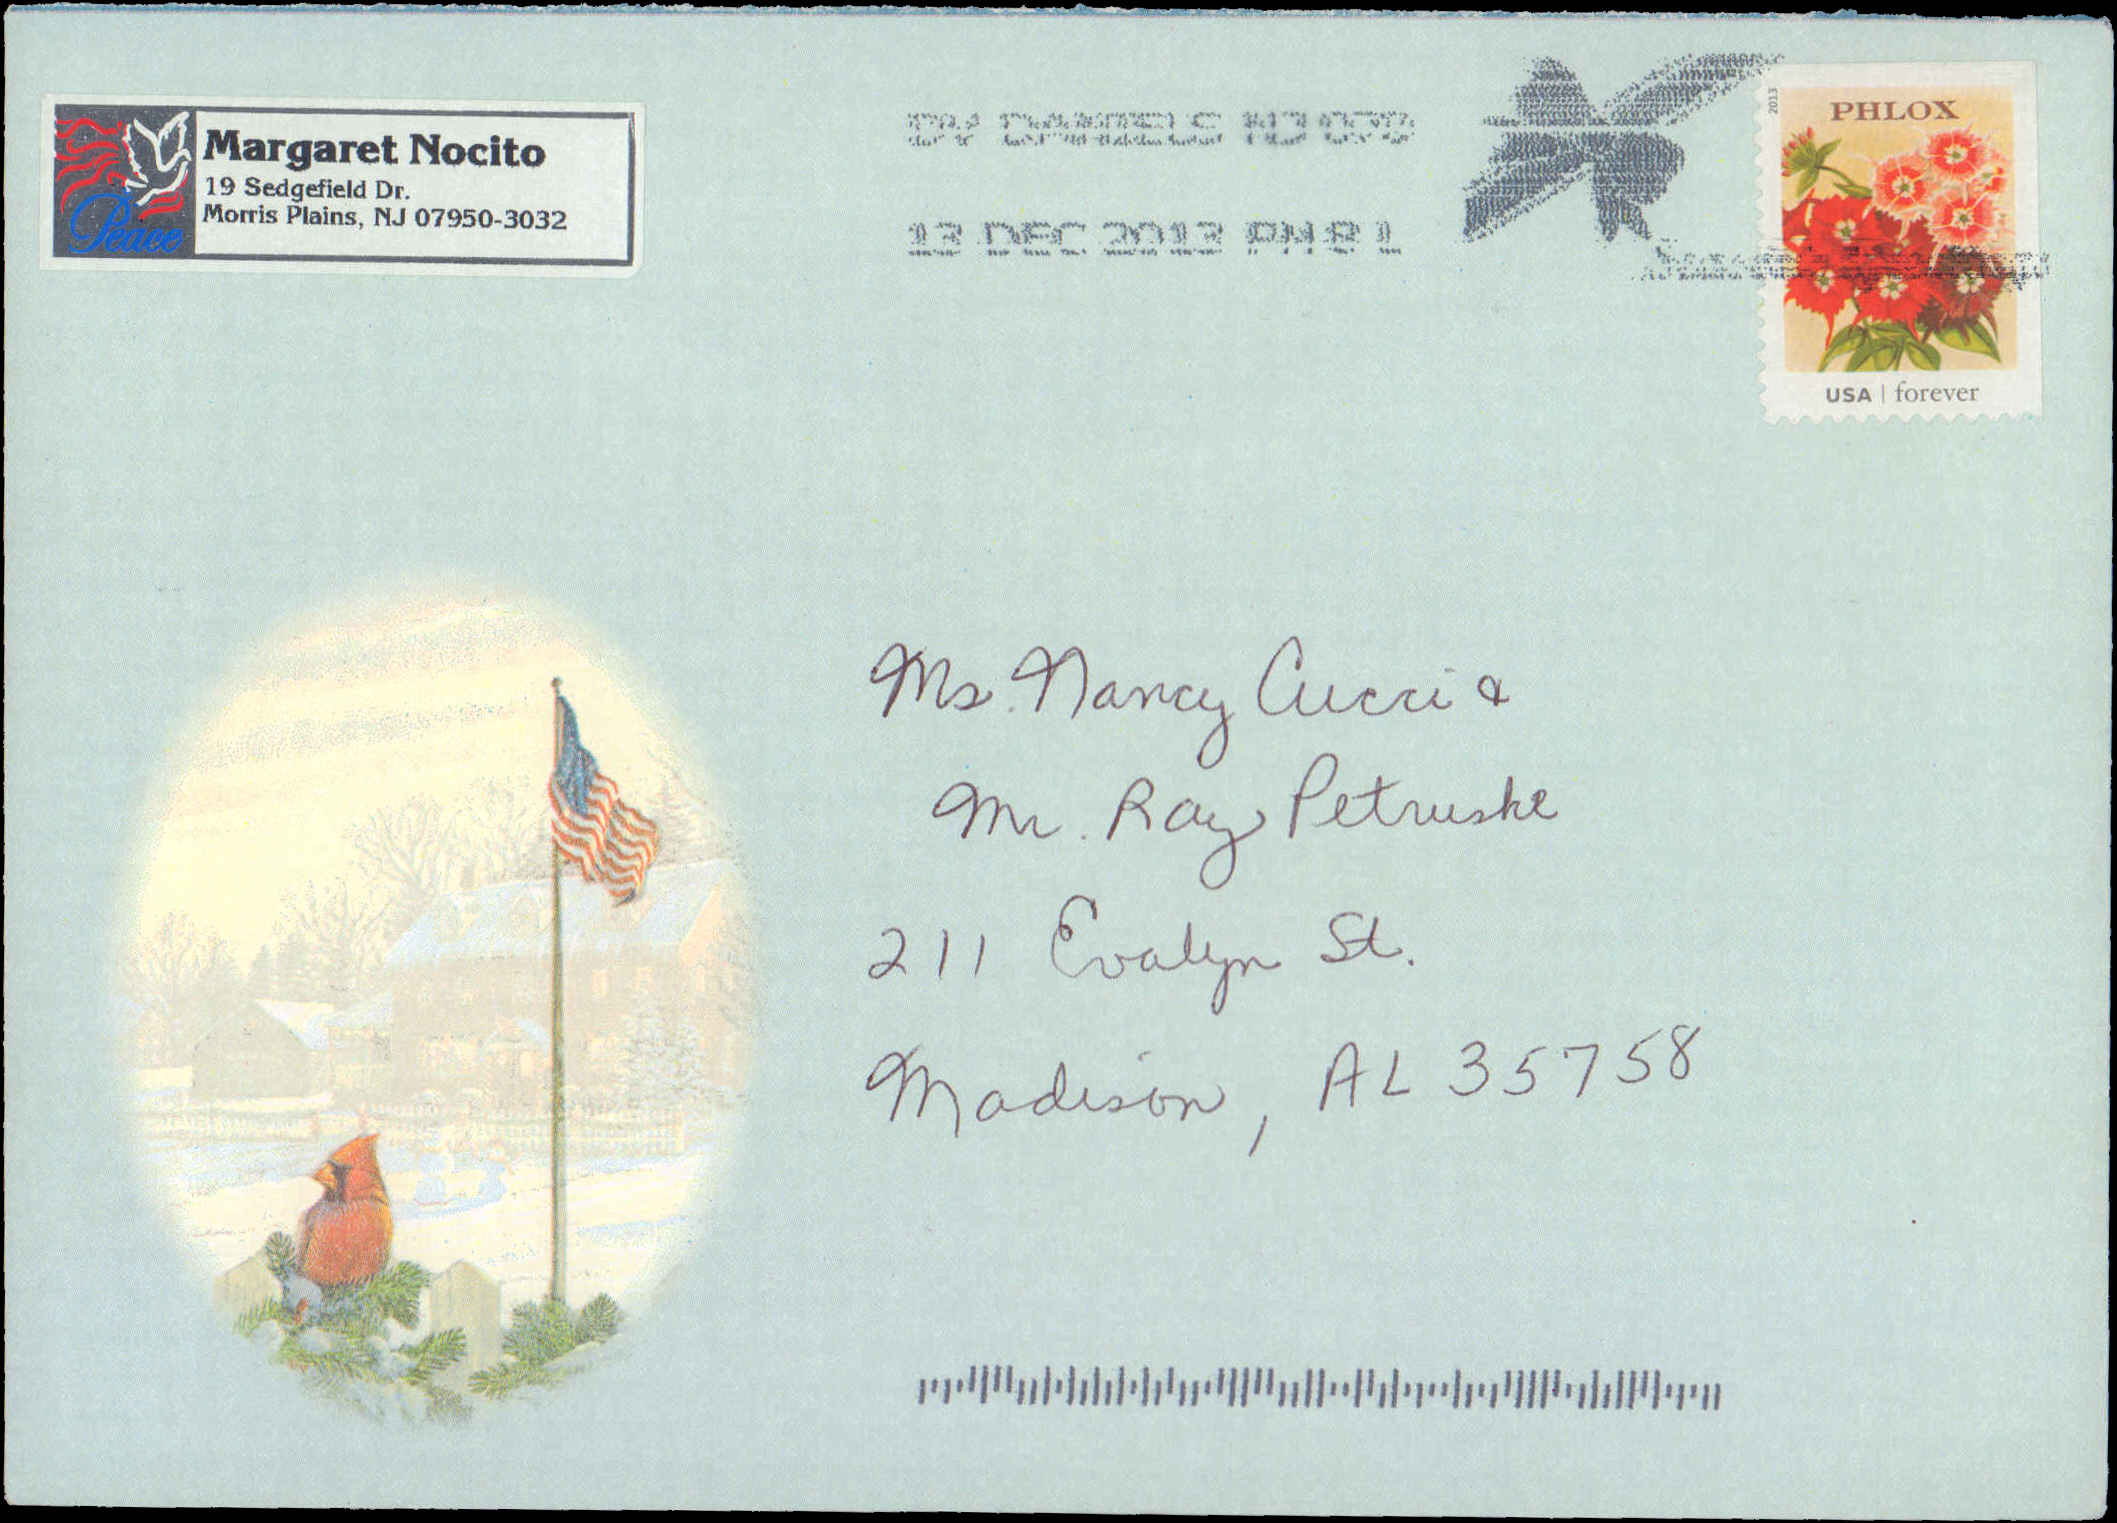 Peace
Margaret Nocito
19 Sedgefield Dr.
Morris Plains, NJ 07950-3032
DV DANIELS NJ 070
13 DEC 2013 PM 8 L
2013
PHLOX
USA | forever
Ms. Nancy Cucci &
Mr. Ray Petruske
211 Evalyn St.
Madison, AL 35758